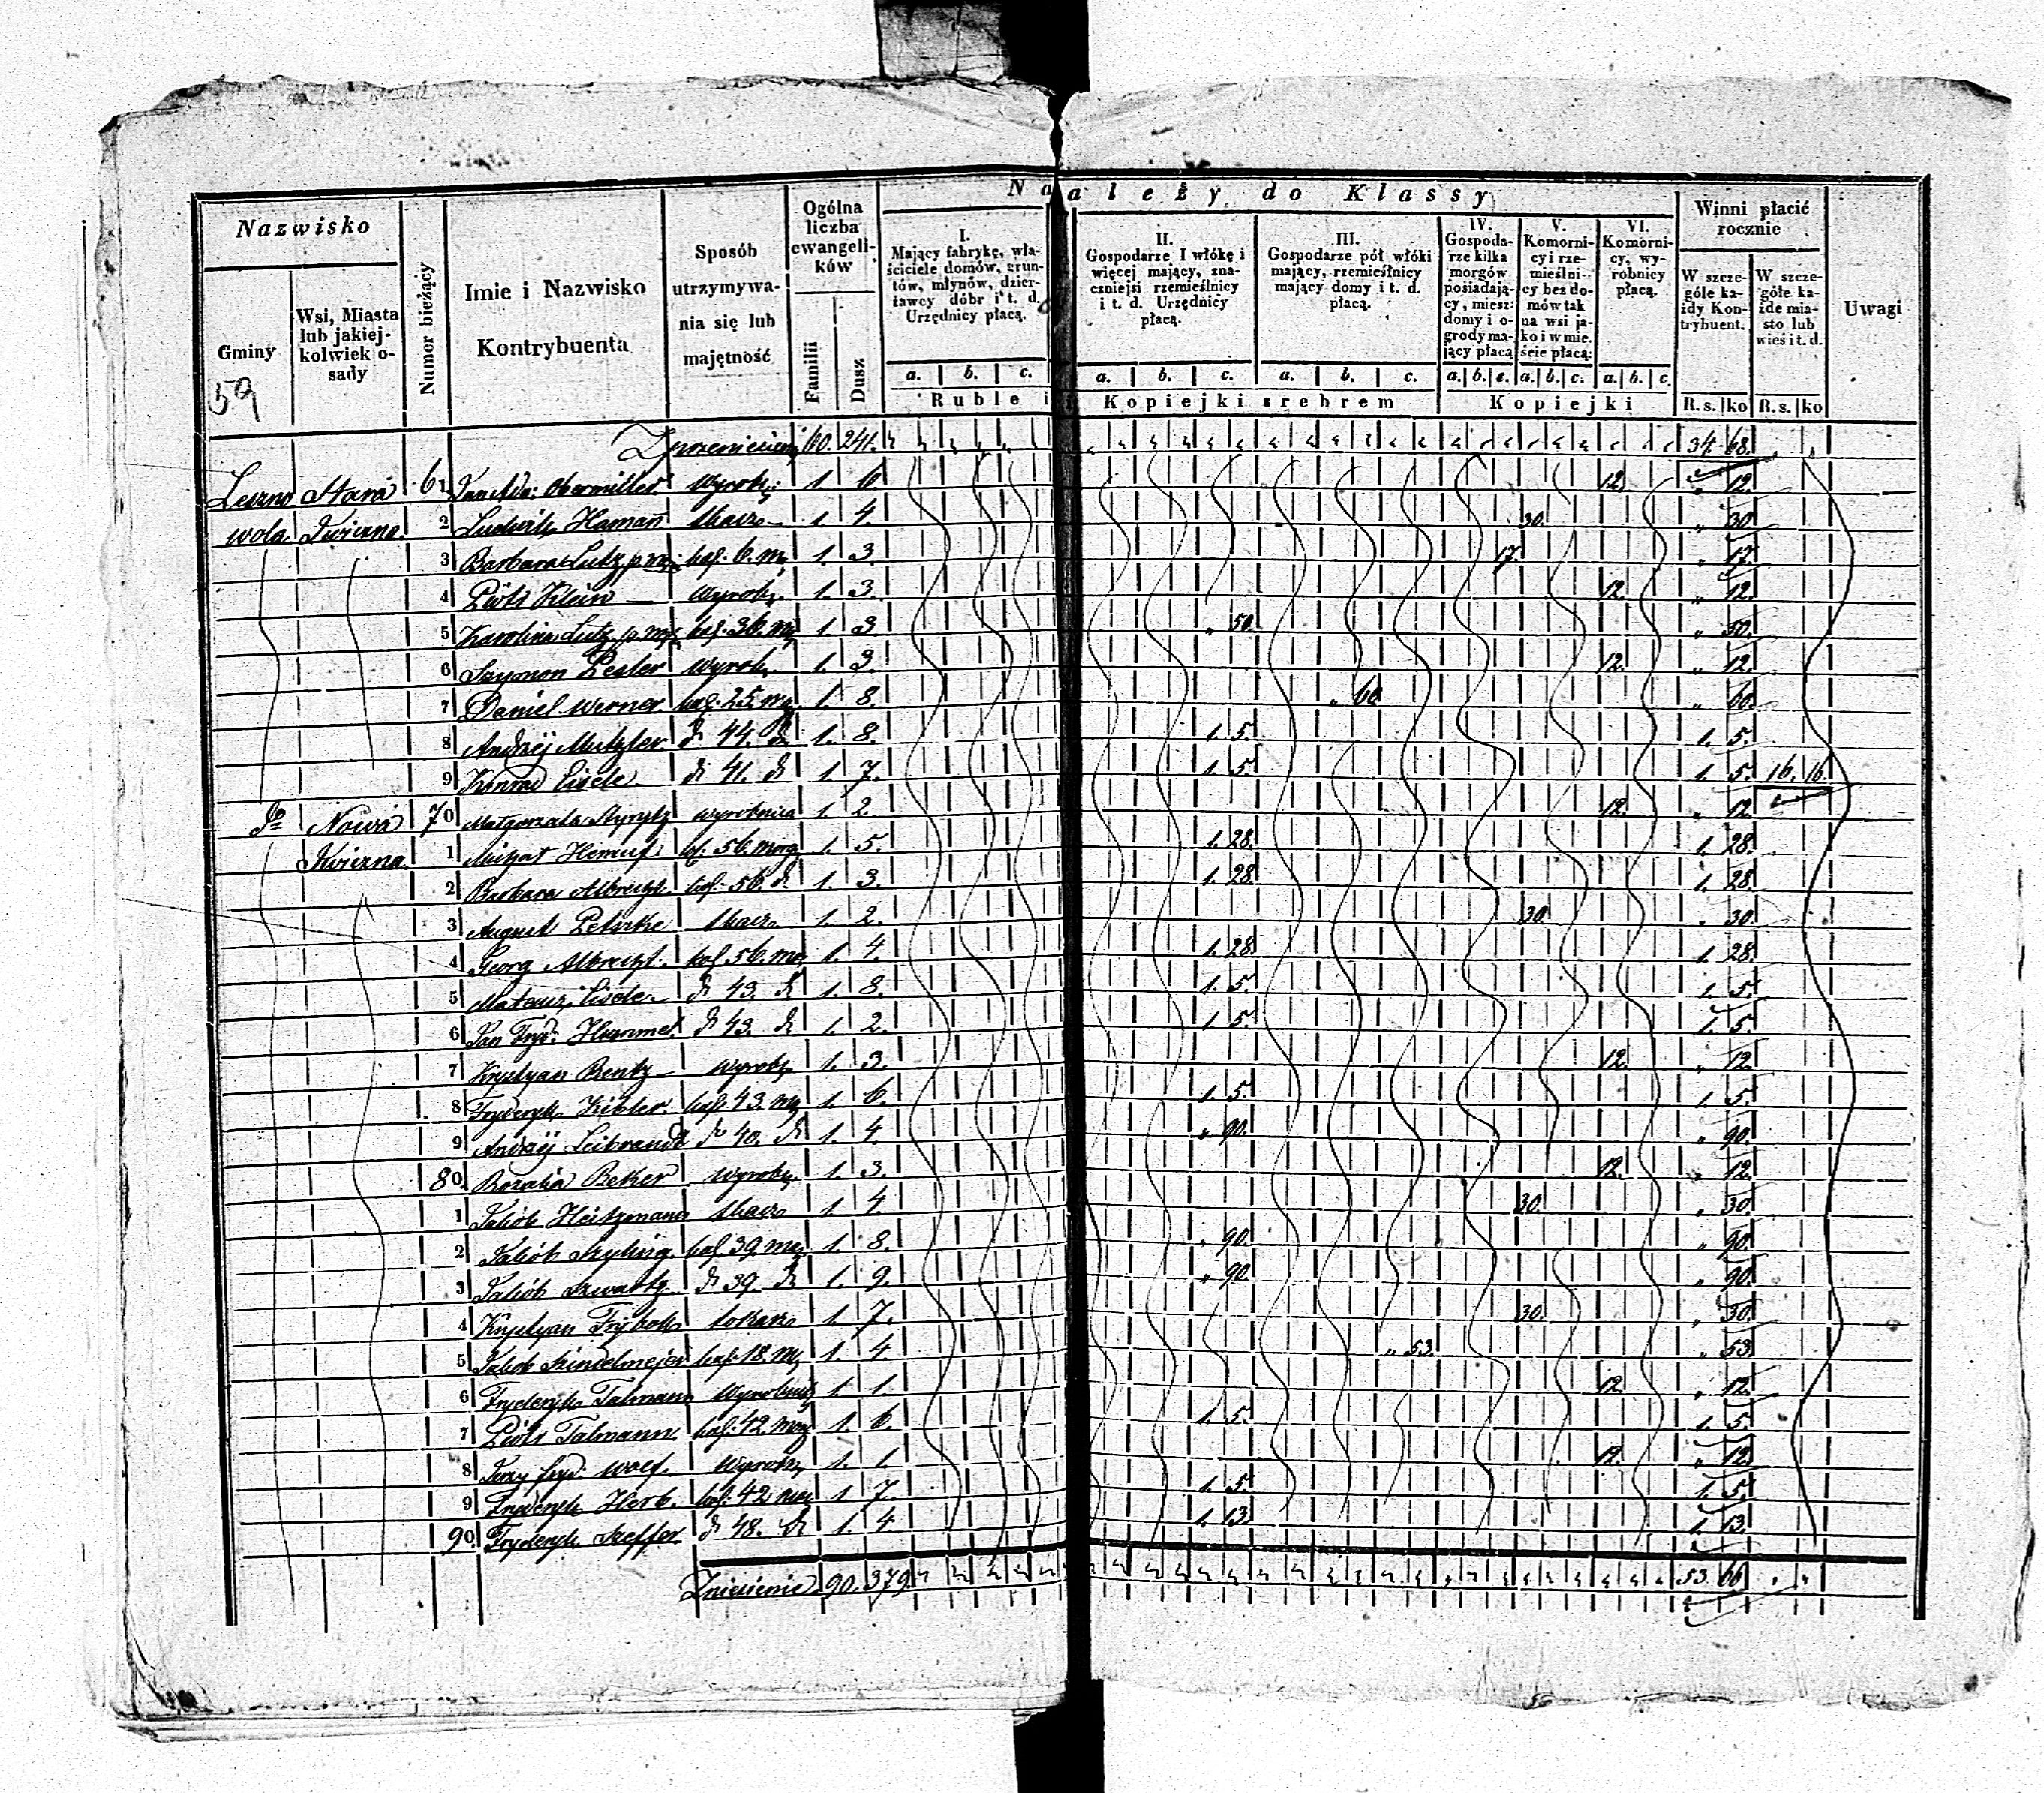 Należy do Klassy
Nazwisko
Gminy
Wsi, Miasta lub jakiej-kolwiek o-sady
Numer bieżący
Imie i Nazwisko Kontrybuenta
Sposób utrzymywa-nia się lub majętność
Ogólna liczba ewangeli-ków
Familii
Dusz
I. Mający fabrykę, wła-ściciele domów, grun-tów, młynów, dzier-żawcy dóbr i t. d. Urzędnicy płacą.
II. Gospodarze I włókę i więcej mający, zna-czniejsi rzemieślnicy i t. d. Urzędnicy płacą.
III. Gospodarze pół włóki mający, rzemieślnicy mający domy i t. d. płacą.
IV. Gospoda-rze kilka morgów posiadają-cy, miesz: domy i o-grody ma-jący płacą
V. Komorni-cy i rze-mieślni-cy bez do-mów tak na wsi ja-ko i w mie. ście płacą:
VI. Komorni-cy, wy-robnicy płacą.
Winni płacić rocznie
W szcze-góle ka-żdy Kon-trybuent.
W szcze-góle ka-żde mia-sto lub wieś i t. d.
Uwagi
a. b. c. a. b. c. a. b. c. a. b. c. a. b. c. a. b. c.
Ruble i Kopiejki srebrem Kopiejki R. s. ko R. s. ko
59
60. 241. 34. 68.
Leszno Stara 61 Jan Ada: Obermiller Wyrob: 1. 6 12. " 12.
wola Iwiczna. 2 Ludwik Hamañ tkacz 1. 4. 30. " 30.
3 Barbara Lutz p. m: kol. 6. m. 1. 3. 17. " 17.
4 Piotr Klein Wyrob. 1. 3. 12. " 12.
5 Karolina Lutz p. m: kol. 36. mg 1. 3 " 50. " 50.
6 Szymon Lesler wyrob. 1. 3. 12. " 12.
7 Daniel Werner kol. 25. mg. 1. 8. " 60. " 60.
8 Andrzej Mutzler do 44. do 1. 8. 1. 5. 1. 5.
9 Konrad Eisele do 41. do 1. 7. 1. 5. 1. 5. 16. 16.
do Nowa 70 Małgorzata wyrobnica 1. 2. 12. " 12.
Iwiczna 1 56. morg 1. 5. 1. 28. 1. 28.
2 Barbara Albrecht kol. 56. d. 1. 3. 1. 28. 1. 28.
3 August Petszke tkacz 1. 2. 30. " 30.
4 Georg Albrecht kol. 56. mg 1. 4. 1. 28. 1. 28.
5 Mateusz Eisele do 43. do 1. 8. 1. 5. 1. 5.
6 Jan Fryd. Hummel do 43. do 1. 2. 1. 5. 1. 5.
7 Krystyan Bentz wyrob. 1. 3. 12. " 12.
8 Fryderyk Kibler kol. 43. mg 1. 6. 1. 5. 1. 5.
9 Andrzej Leibrandt do 40. do 1. 4. " 90. " 90.
80. Rozalia Beker Wyrob. 1. 3. 12. " 12.
1 Jakób Heitzmann tkacz 1 4. 30. " 30.
2 Jakób Szyling kol. 39. mg. 1. 8. " 90. " 90.
3 Jakób Szwartz do 39. do 1. 9. " 90. " 90.
4 Krystyan 1. 7. 30. " 30.
5 Jakób Szindelmejer kol. 18. mg 1. 4. " 53. " 53.
6 Fryderyk Talmann Wyrobnik 1. 1. 12. " 12.
7 Piotr Talmann kol. 42. morg 1. 6. 1. 5. 1. 5.
8 Jerzy fryd: Wolf. Wyrob. 1. 1. 12. " 12.
9 Fryderyk Herb. kol. 42 mg 1 7. 1. 5. 1. 5.
90. Fryderyk Szeffer do 48. do 1. 4. 1. 13. 1. 13.
Zniesienie 90. 379 53. 66